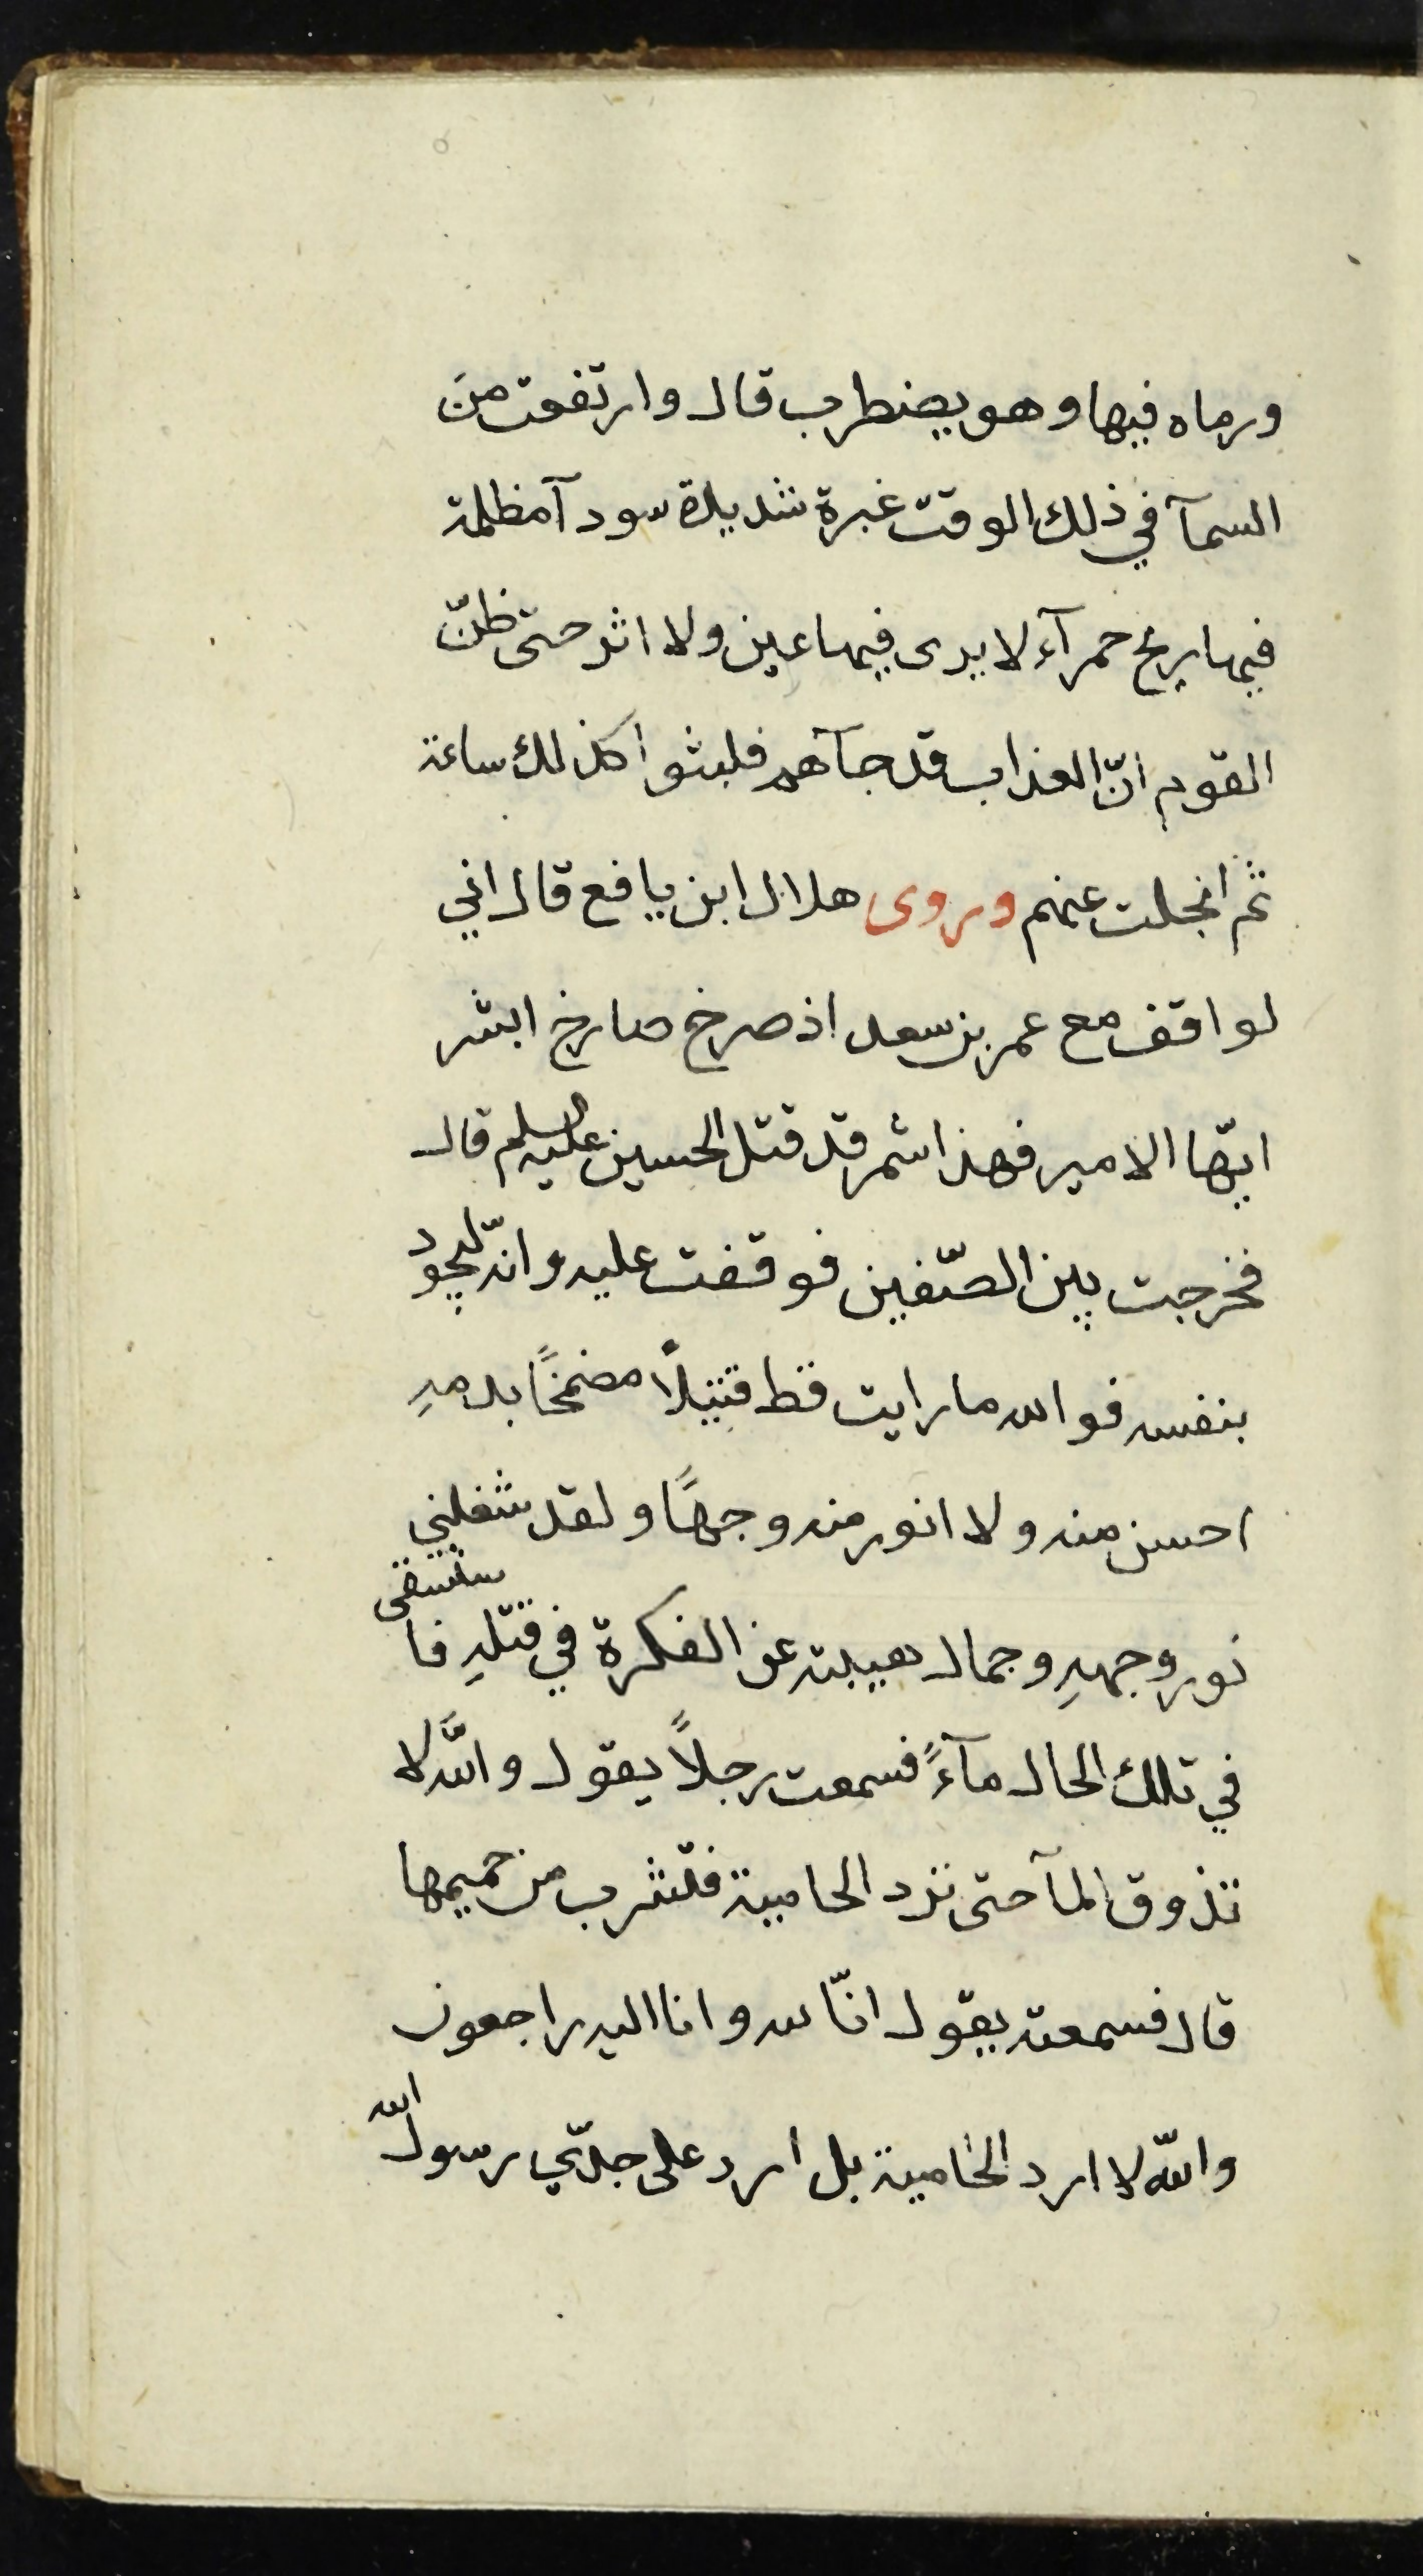 ورماه فيها وهو يضطرب قال وارتفعت منَ
السمآ في ذلك الوقت غبرة شديدة سودآ مظلمة
فيها ريح حمرآء لا يرى فيها عين ولا اثر حتى ظنّ
القوم انّ العذاب قد جآهم فلبثوا كذلك ساعة
ثم انجلت عنهم وروى هلال ابن يافع قال اني
لواقف مع عمر بن سعد اذ صرخ صارخ ابشر
ايّها الامير فهذا شمر قد قتل الحسين عليه السلم قال
فخرجت بين الصّفين فوقفت عليه وانّه ليجود
بنفسه فوالله ما رايت قط قتيلاً مضمخًا بدمهِ
احسن منه ولا انور منه وجهًا ولقد شغلني
نور وجههِ وجمال هيبته عن الفكرة في قتلهِ فاستسقى
في تلك الحال مآءً فسمعت رجلاً يقول واللَّه لا
تذوق المآ حتى ترد الحامية فتشرب من حميمها
قال فسمعته يقول انّا لله وانا اليه راجعون
واللّه لا ارد الحامية بل ارد على جدّي رسول الله